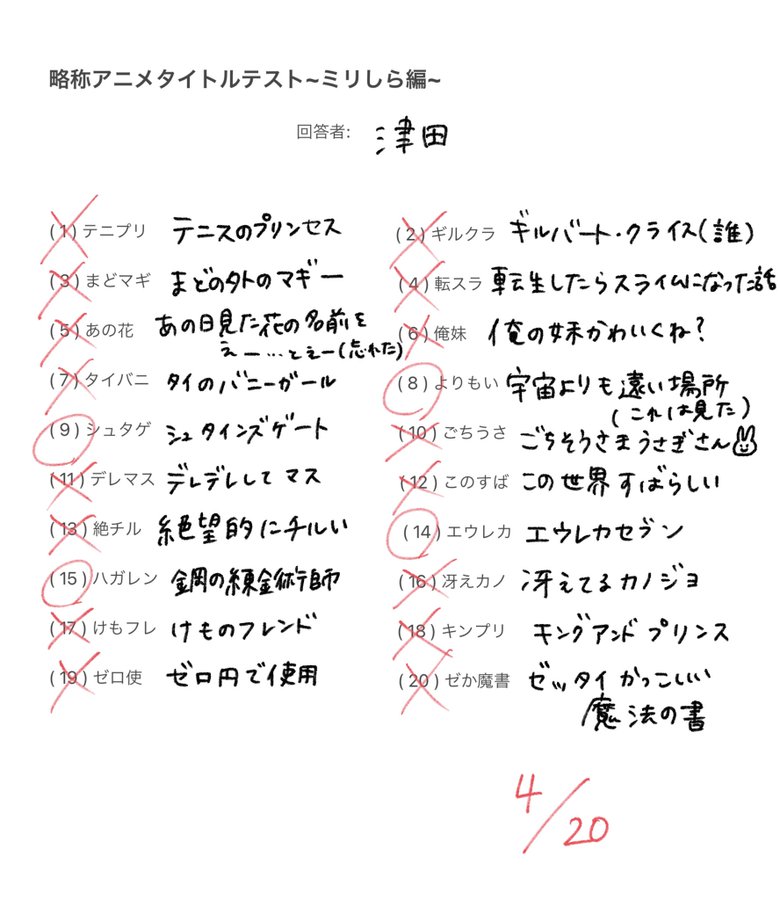 略称アニメタイトルテスト~ミリしら編~
回答者: 津田
(1) テニプリ テニスのプリンセス
(2) ギルクラ ギルバート・クライス(誰)
(3) まどマギ まどの外のマギー
(4) 転スラ 転生したらスライムになった話
(5) あの花 あの日見た花の名前を
えー…とぇー(忘れた)
(6) 俺妹 俺の妹かわいくね?
(7) タイバニ タイのバニーガール
(8) よりもい 宇宙よりも遠い場所
(これは見た)
(9) シュタゲ シュタインズゲート
(10) ごちうさ ごちそうさまうさぎさん
(11) デレマス デレデレしてマス
(12) このすば この世界すばらしい
(13) 絶チル 絶望的にチルい
(14) エウレカ エウレカセブン
(15) ハガレン 鋼の錬金術師
(16) 冴えカノ 冴えてるカノジョ
(17) けもフレ けものフレンド
(18) キンプリ キングアンドプリンス
(19) ゼロ使 ゼロ円で使用
(20) ゼか魔書 ゼッタイかっこいい
魔法の書
4/20